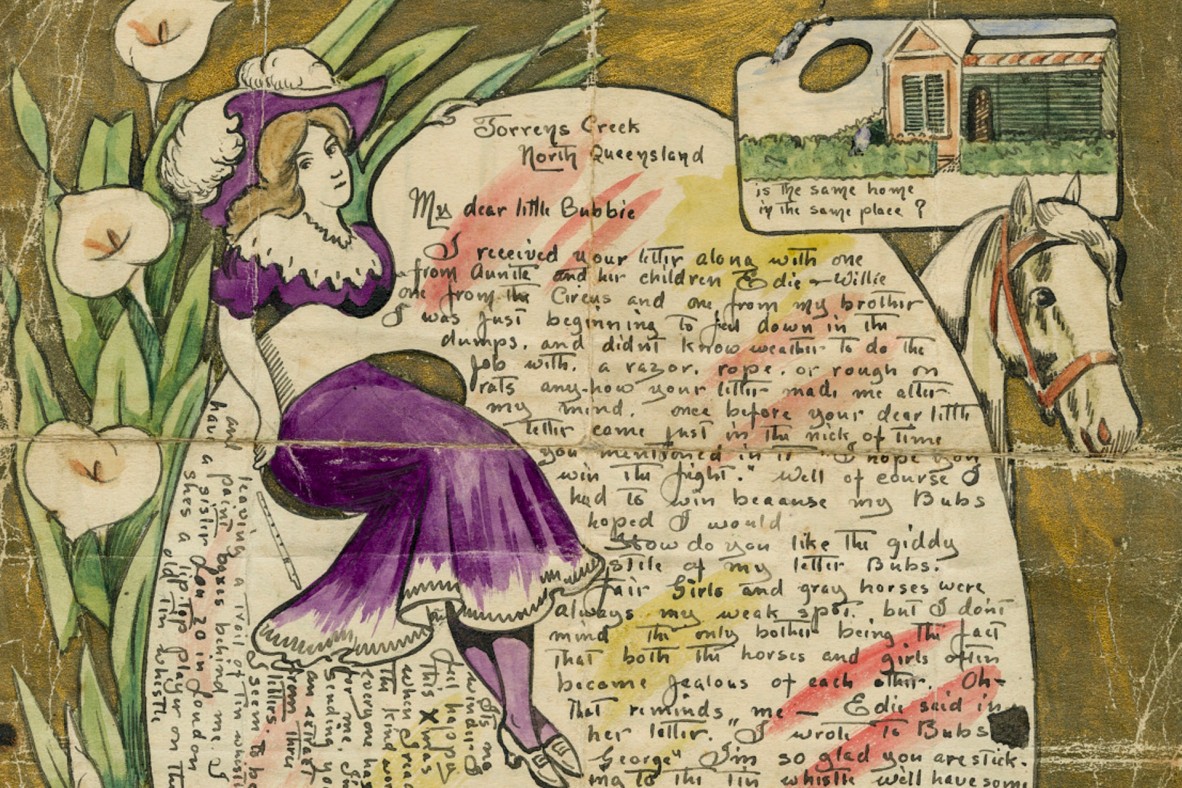 Torrens Creek
North Queensland
is the same home
in the same place ?
My dear little Bubbie
I received your letter along with one
from Auntie and her children Edie - Willie
one from the Circus and one from my brother
I was just beginning to feel down in the
dumps. and didnt know weather to do the
job with. a razor. rope. or rough on
rats any-how your letter made me alter
my mind. once before your dear little
letter came just in the nick of time
you mentioned in it "I hope you
win the fight." Well of course I
had to win beaause my Bubs
hoped I would
How do you like the giddy
stile of my letter Bubs.
Fair Girls and gray horses were
always my weak spot. but I dont
mind the only bother being the fact
that both the horses and girls often
become jealous of each other. Oh-
That reminds me — Edie said in
her letter. "I wrote to Bubs
George" Im so glad you are stick-
ing to the tin whistle we'll have some
Its no
winder I
feel happy
this Xmas
when I read
the kind
everyone has
for me. Im
sending you
an extract
from three
letters.
I seem to be
leaving a trail of tin
and paint boxes behind me. I
have a sister 20 in London
shes a tip top player on the
old tin whistle